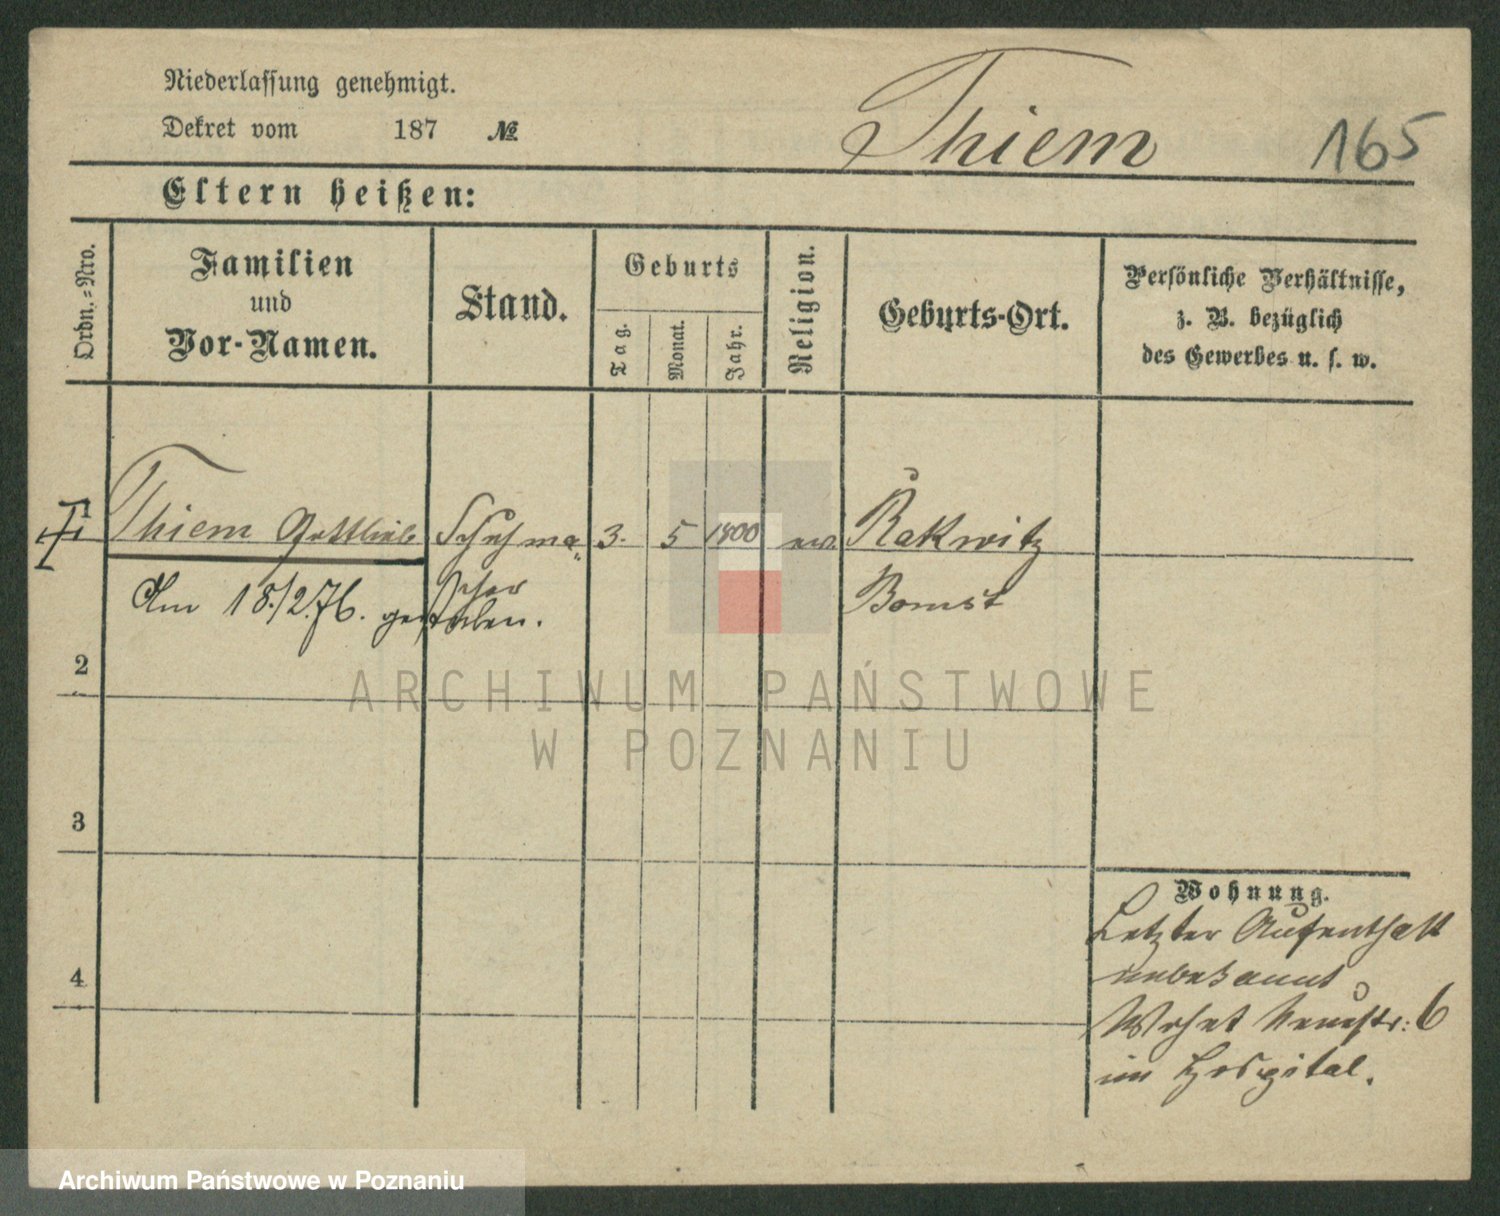 Niederlassung genehmigt.
Dekret vom 187 №
Thiem
165
Eltern heißen:
Ordn.-Nro.
Familien
und
Vor-Namen.
Stand.
Geburts
Tag.
Monat.
Jahr.
Religion.
Geburts-Ort.
Persönliche Verhältnisse,
z. B. bezüglich
des Gewerbes u. s. w.
1 Thiem Gottlieb Schuhma„ 3. 5 1800 ev. Rakwitz
cher Bomst
Am 18./2.76. gestorben.
2
3
4
Wohnung.
Letzter Aufenthalt
unbekannt
Wohnt Neuestr: 6
im Hospital.
ARCHIWUM PAŃSTWOWE
W POZNANIU
Archiwum Państwowe w Poznaniu